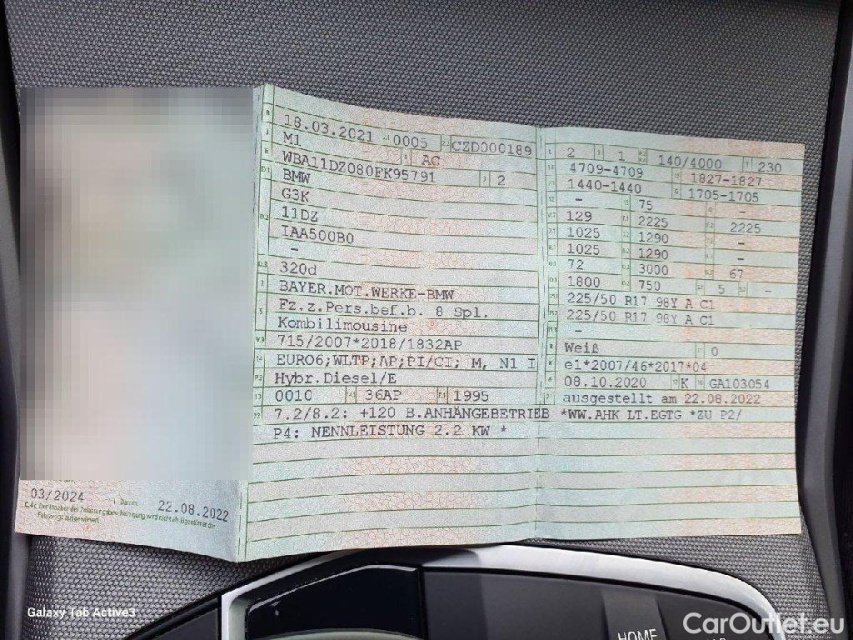 18.03.2021 0005 CZD000189
M1 AC
WBA11DZ080FK95791 2
BMW
G3K
11DZ
IAA500B0
-
320d
BAYER.MOT.WERKE-BMW
Fz.z.Pers.bef.b. 8 Spl.
Kombilimousine
715/2007*2018/1832AP
EURO6;WLTP;AP;PI/CI; M, N1 I
Hybr.Diesel/E
0010 36AP 1995
7.2/8.2: +120 B.ANHÄNGEBETRIEB *WW.AHK LT.EGTG *ZU P2/
P4: NENNLEISTUNG 2.2 KW *
2 1 140/4000 230
4709-4709 1827-1827
1440-1440 1705-1705
- 75 -
129 2225 2225
1025 1290 -
1025 1290 -
72 3000 67
1800 750 5 -
225/50 R17 98Y A C1
225/50 R17 98Y A C1
-
Weiß 0
e1*2007/46*2017*04
08.10.2020 K GA103054
ausgestellt am 22.08.2022
03/2024 22.08.2022
HOME
Galaxy Tab Active3
CarOutlet.eu